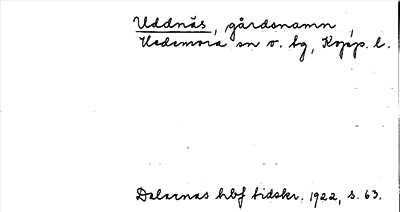 Uddnäs, gårdsnamn,
Hedemora sn o. bg, Kopp. l.
Dalarnas hbf tidskr. 1922, s. 63.